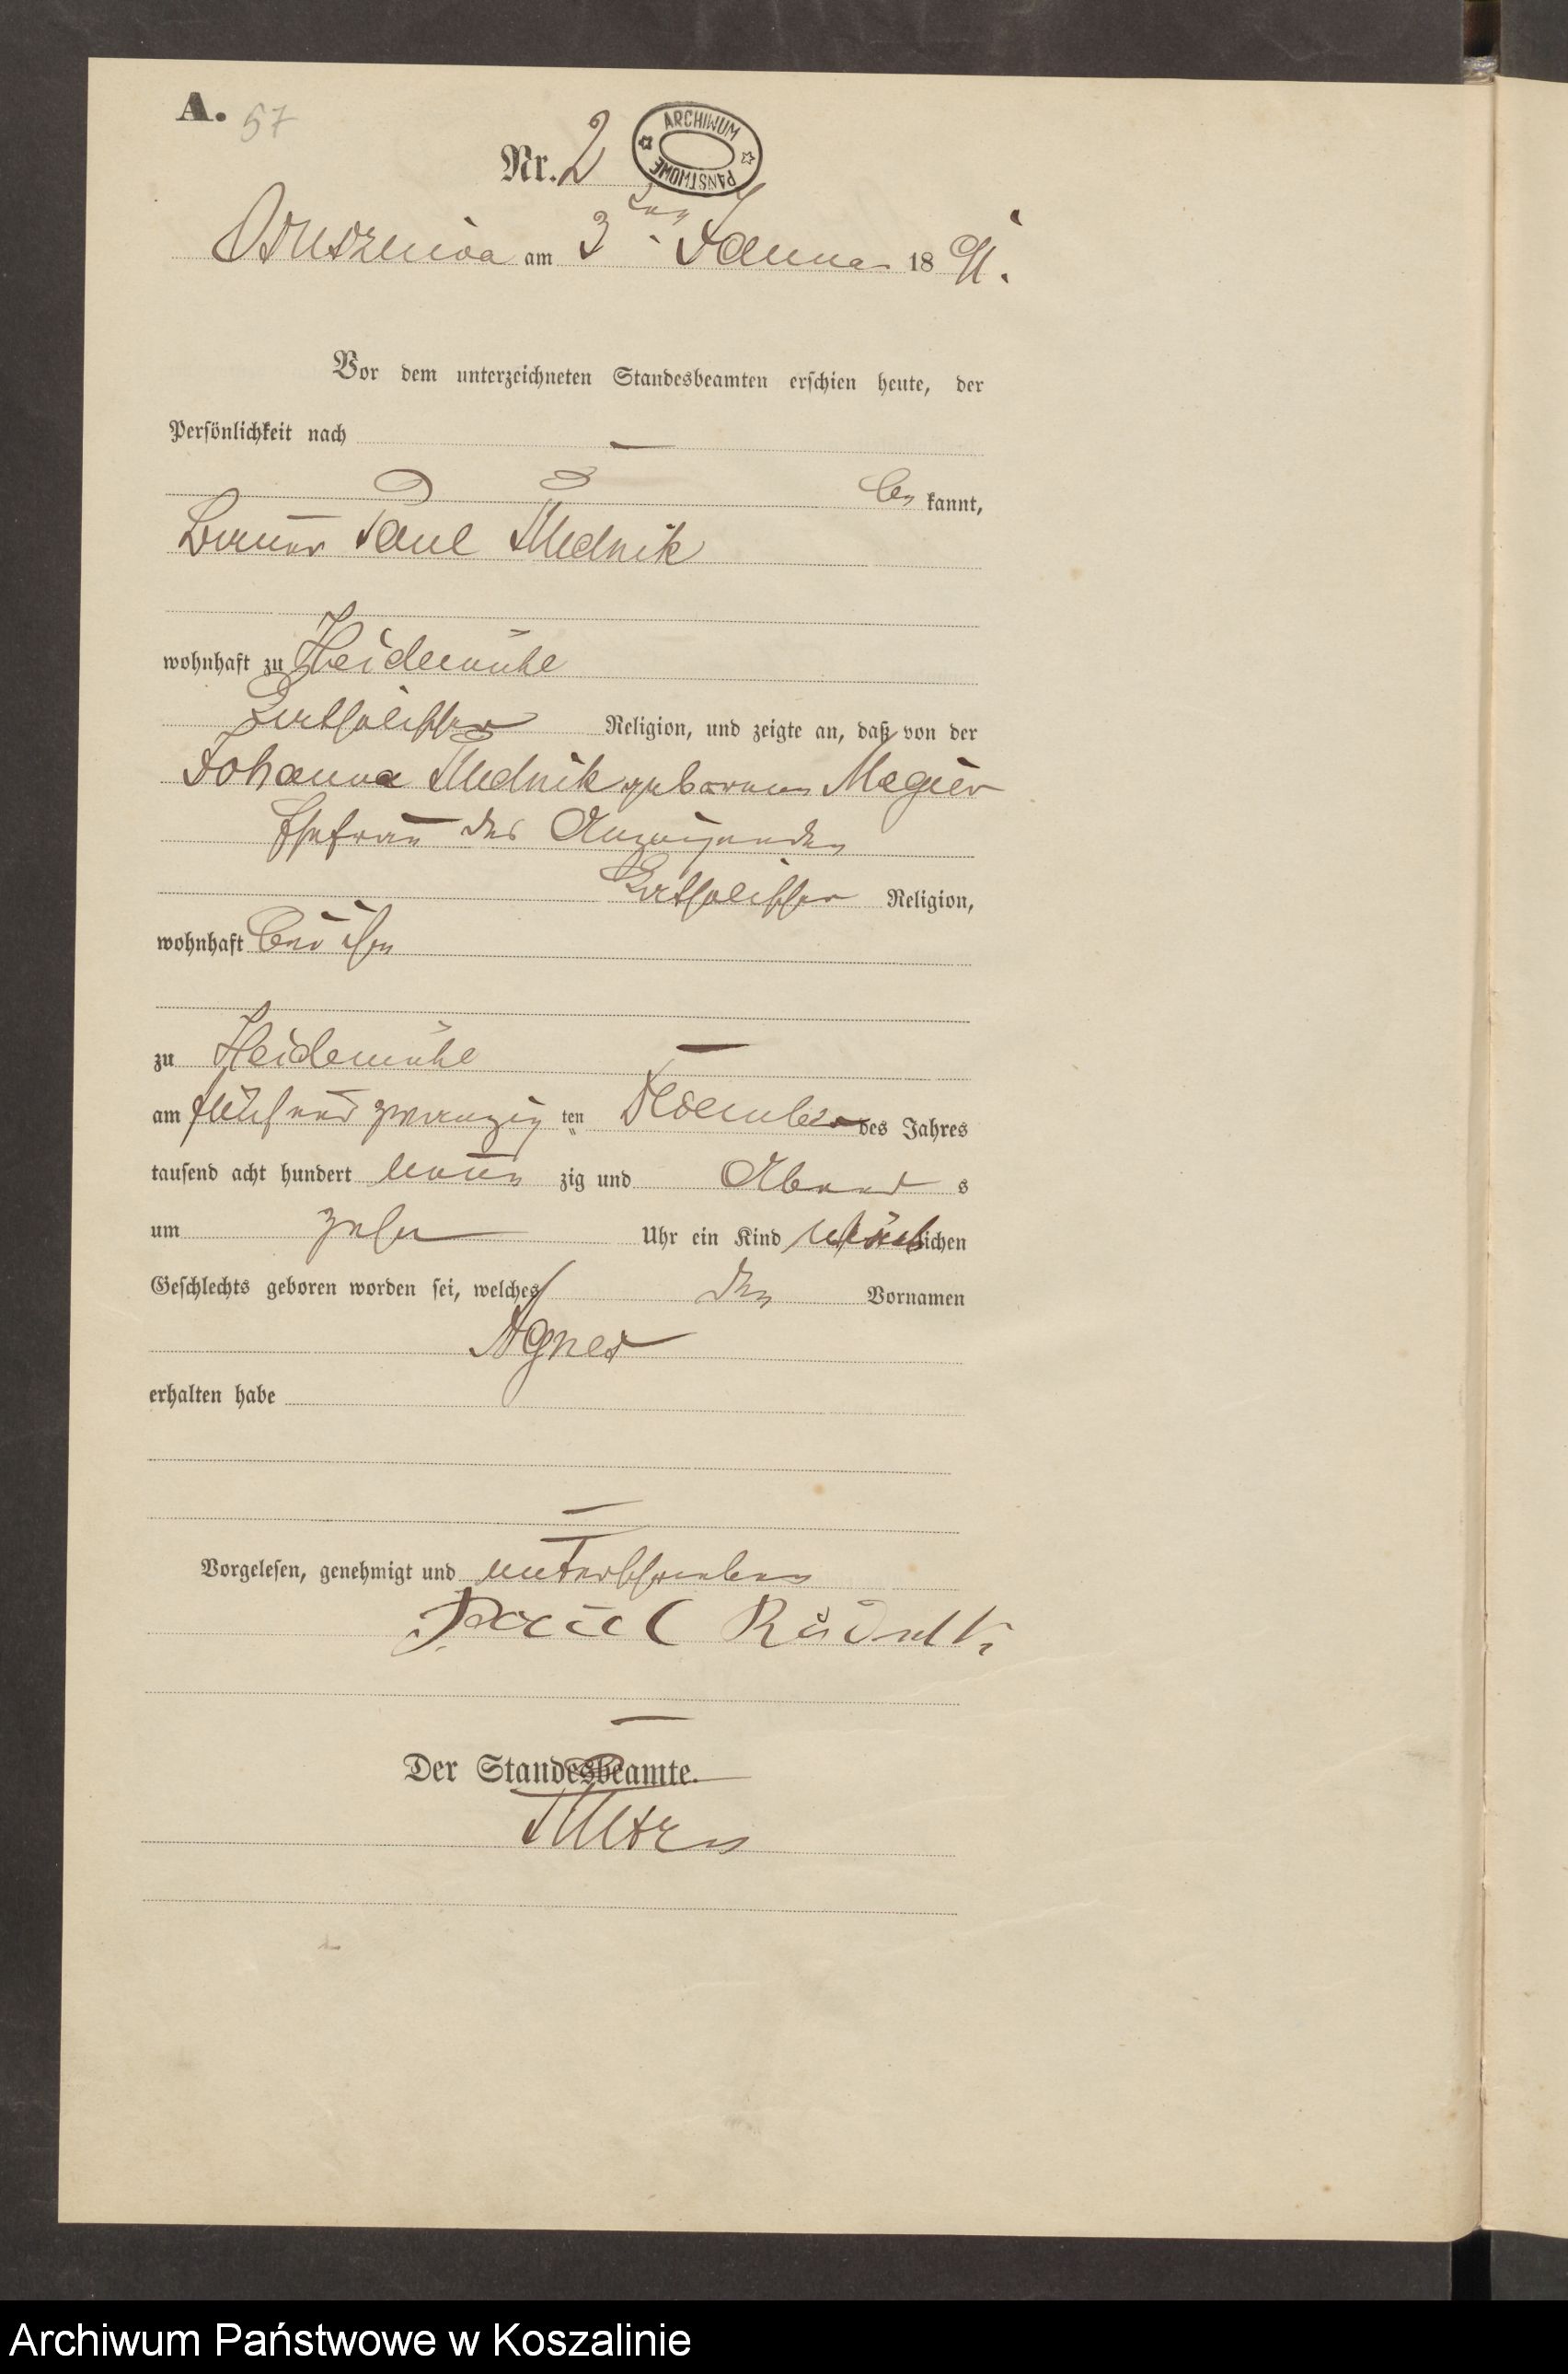 A. 57
Nr. 2
ARCHIWUM PAŃSTWOWE
am 3ten Januar 1891.
Vor dem unterzeichneten Standesbeamten erschien heute, der
Persönlichkeit nach
be kannt,
Bauer Paul
wohnhaft zu Heidemühl
katholischer Religion, und zeigte an, daß von der
Johanna geborenen Magier
Ehefrau des Anzeigenden
katholischer Religion,
wohnhaft bei ihm
zu Heidemühl
am fünf und zwanzig ten Dezember des Jahres
tausend acht hundert neun zig und Abend s
um zehn Uhr ein Kind weiblichen
Geschlechts geboren worden sei, welches den Vornamen
Agnes
erhalten habe
Vorgelesen, genehmigt und unterschrieben
Paul
Der Standesbeamte.
Archiwum Państwowe w Koszalinie